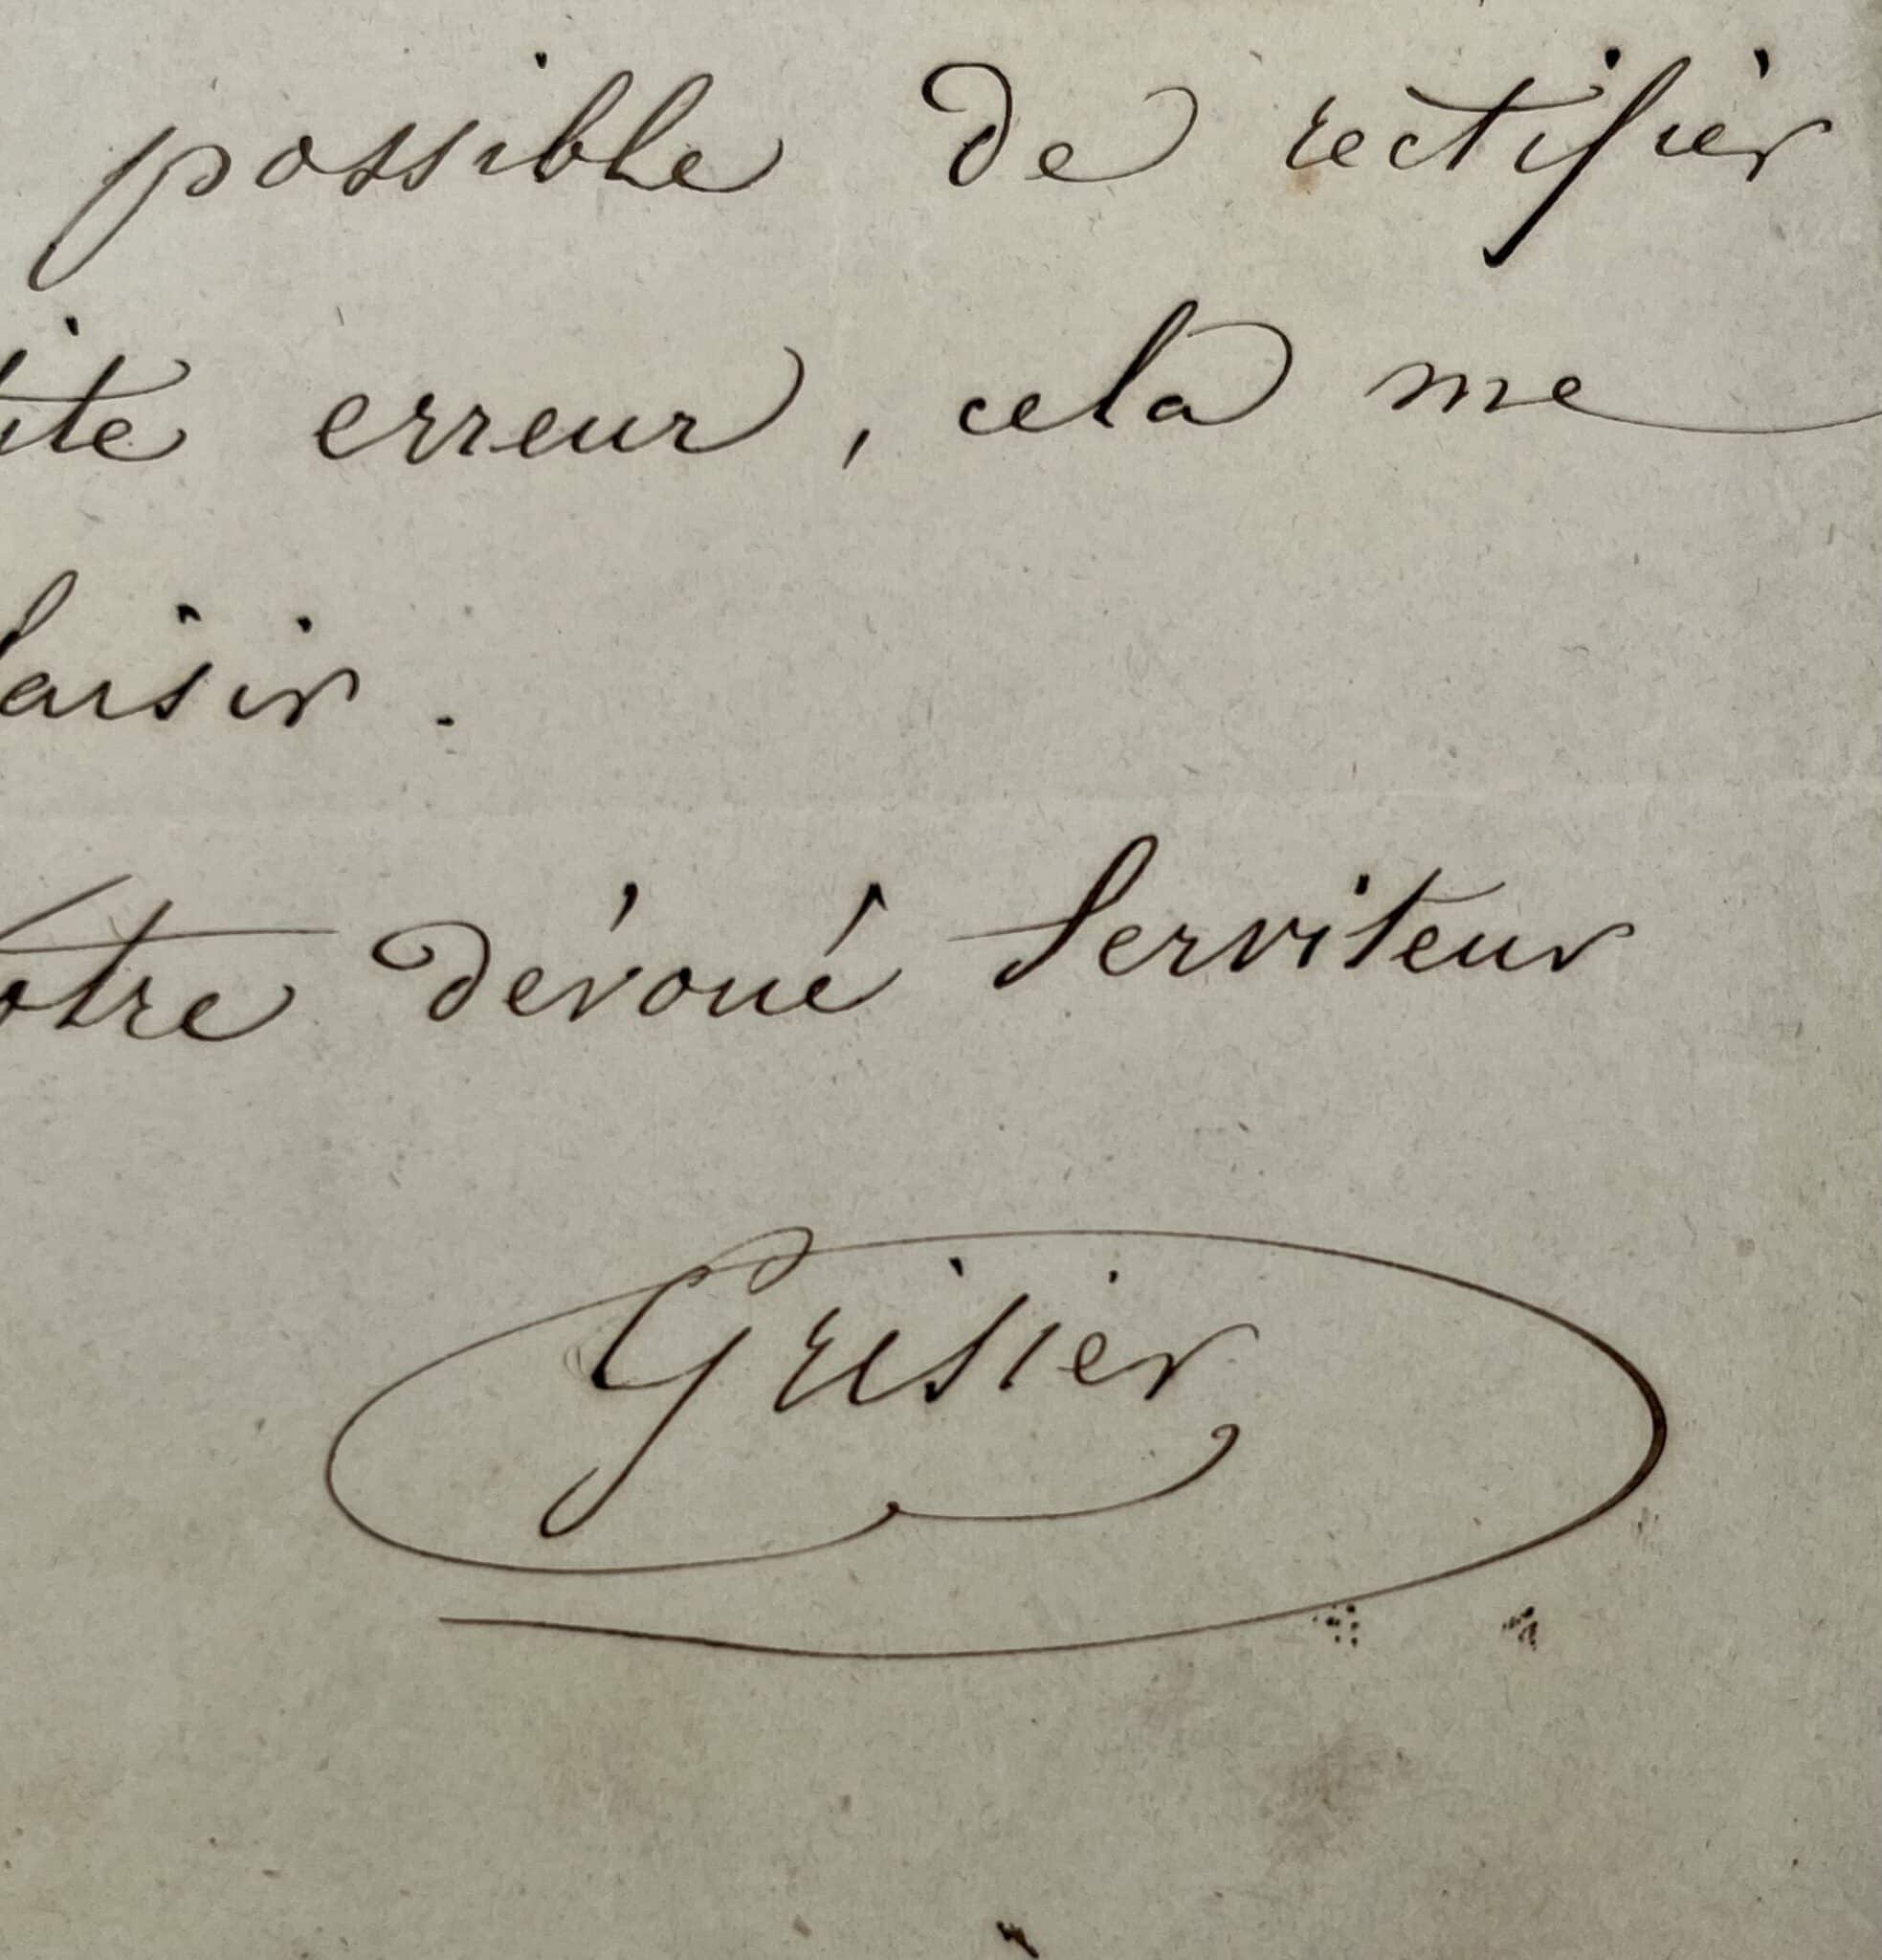 possible de rectifier
tite erreur, cela me
laisir.
otre dévoué Serviteur
Grisier